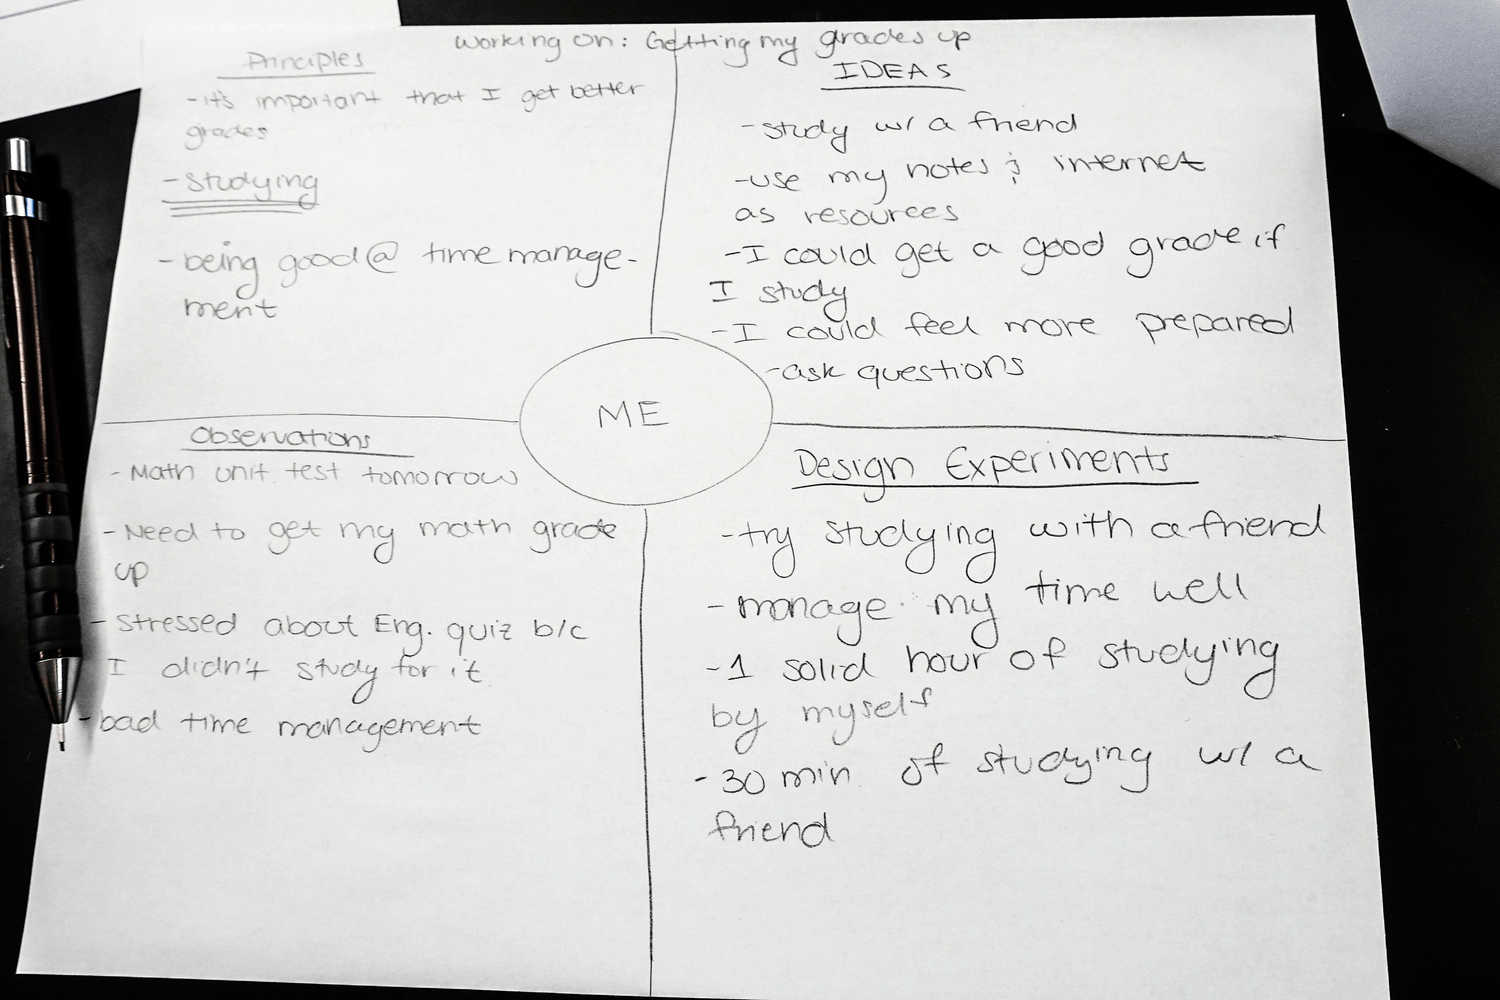 Working on: Getting my grades up
Principles
- it's important that I get better
grades
- studying
- being good @ time manage-
ment
IDEAS
- study w/ a friend
- use my notes & internet
as resources
- I could get a good grade if
I study
- I could feel more prepared
- ask questions
ME
Observations
- Math unit test tomorrow
- Need to get my math grade
up
- stressed about Eng. quiz b/c
I didn't study for it.
- bad time management
Design Experiments
- try studying with a friend
- manage my time well
- 1 solid hour of studying
by myself
- 30 min of studying w/ a
friend